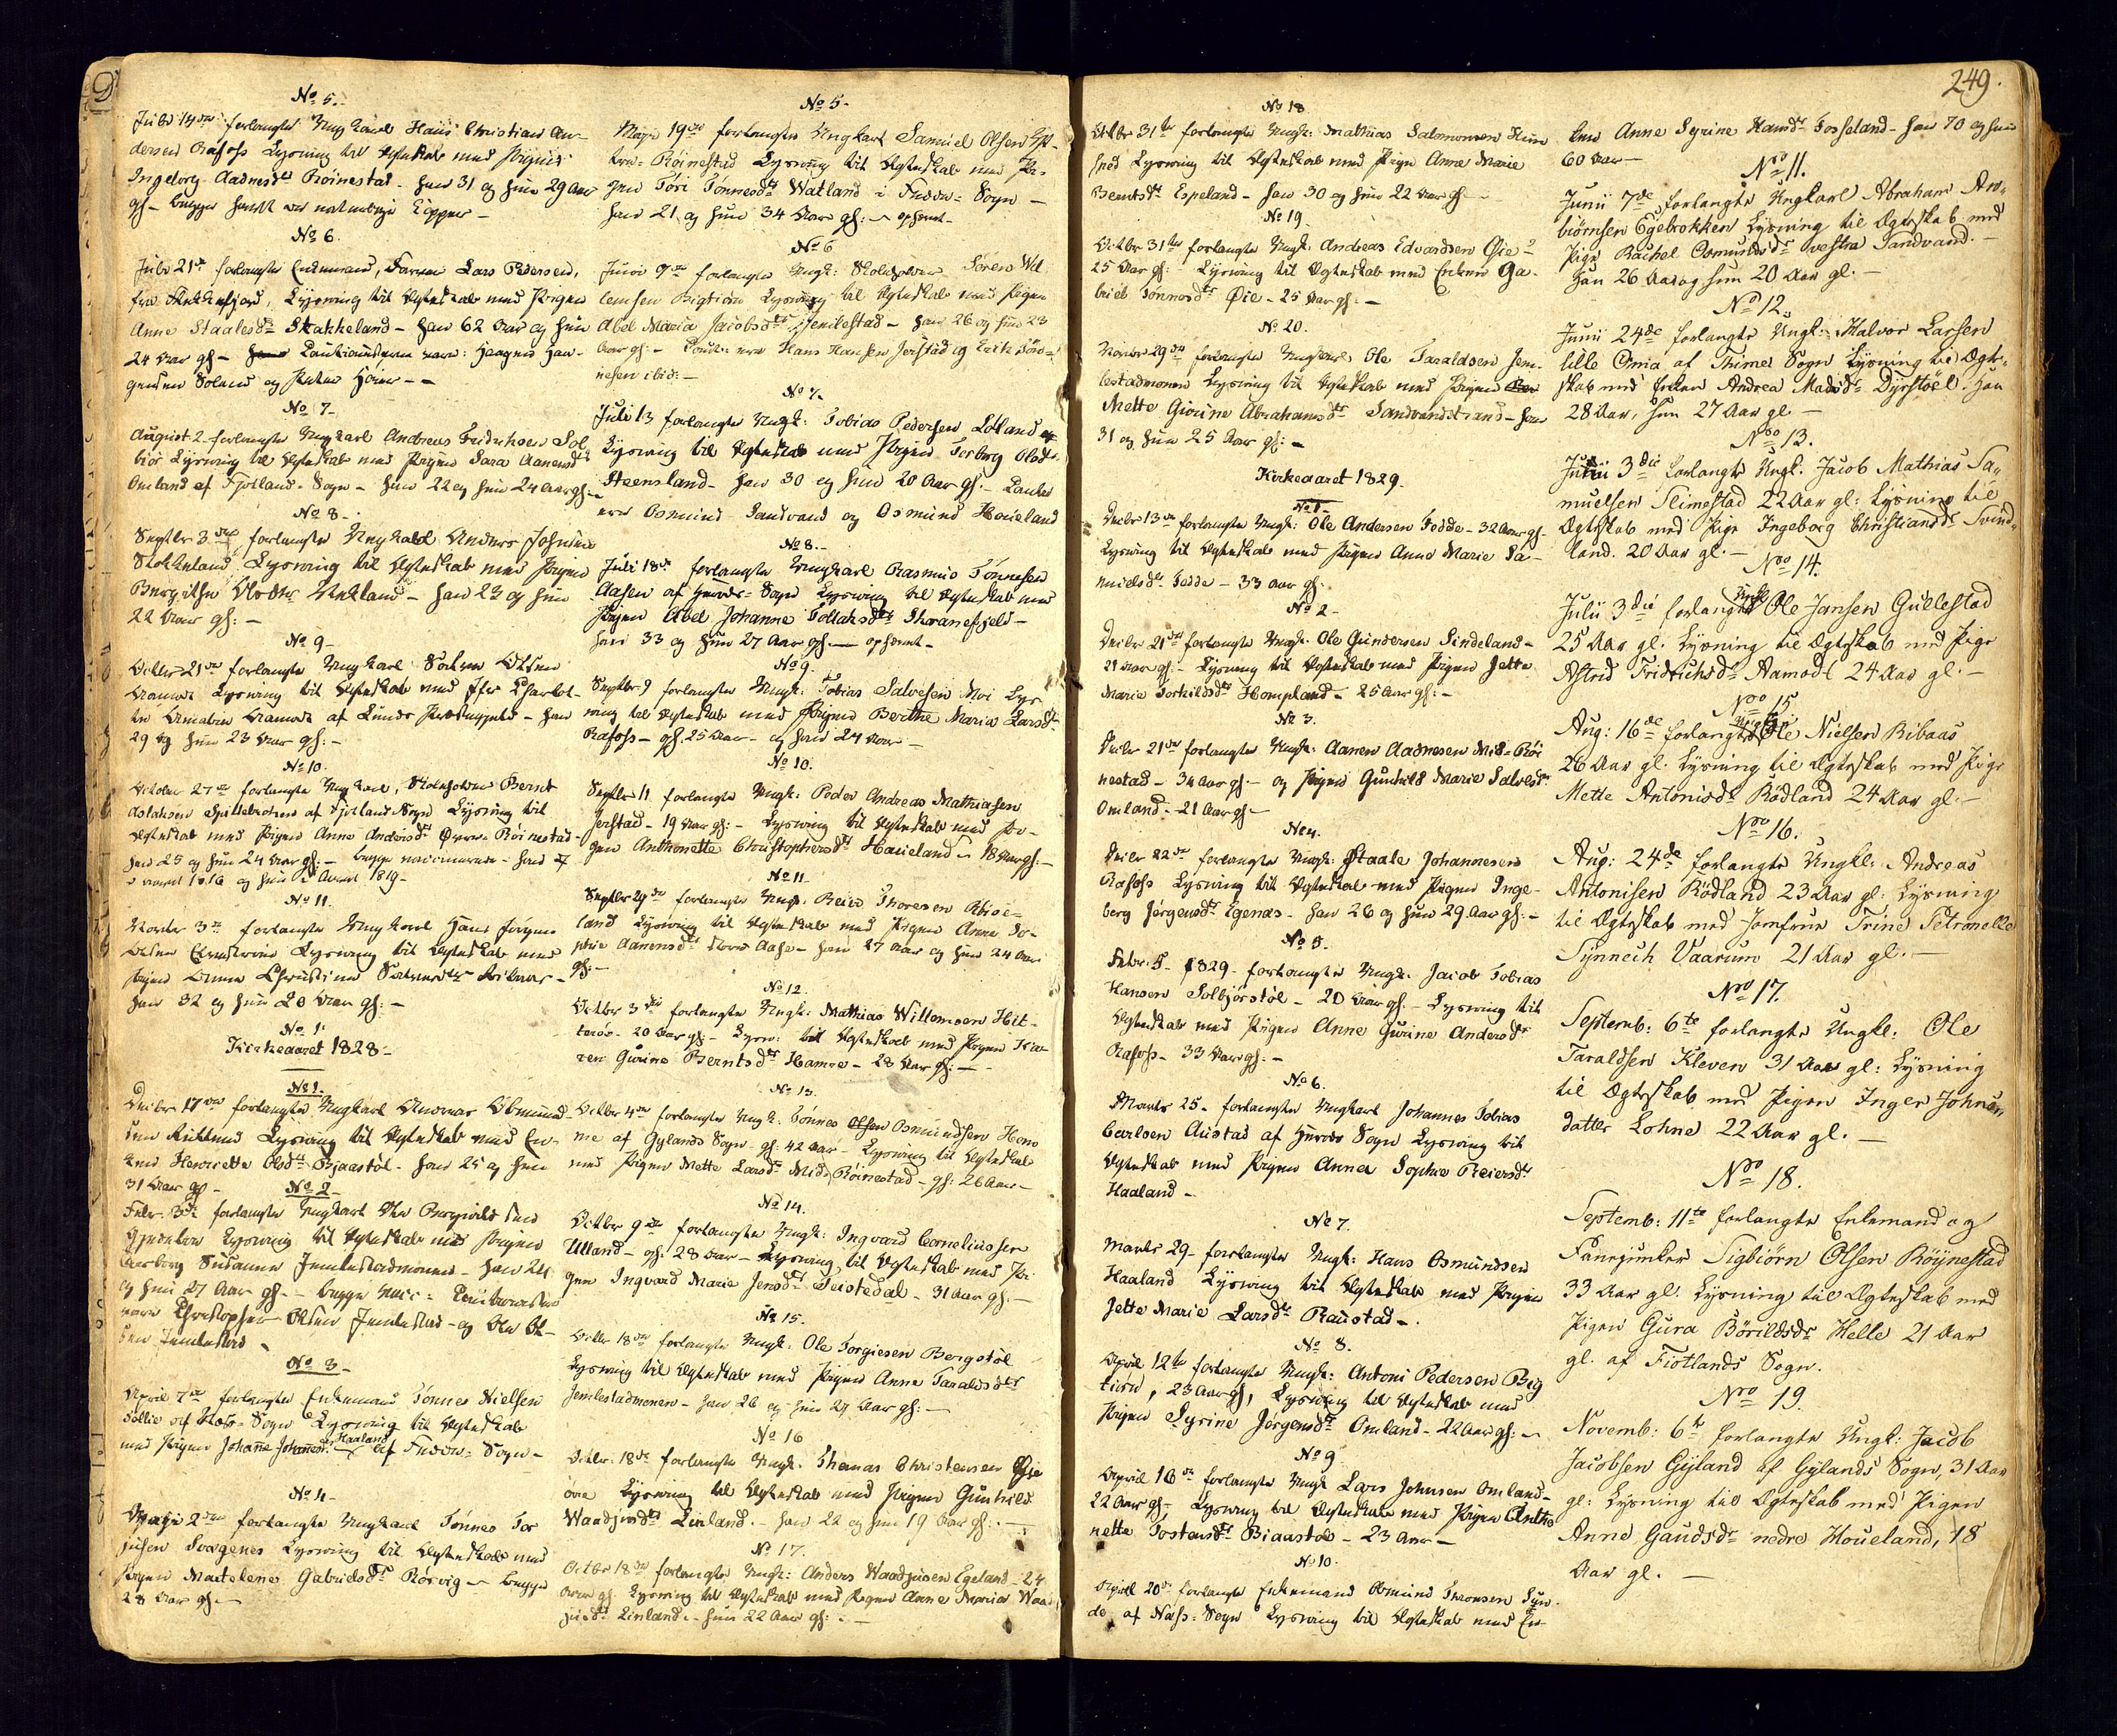 No 5.
Julii 14de forlangte Ungkarl Hans Christian An-
dersen Rafoss Lysning til Ægteskab med Pigen
Ingeborg Aadnesdtr Röinestad - han 31 og hun 29 Aar
gl - begge havt de naturlige Kopper -
No 6.
Julii 21de forlangte Enkemand, Lars Pedersen,
fra Flekkefjord, Lysning til Ægteskab med Pigen
Anne Staalesdr Stakkeland - han 62 Aar og hun
24 Aar gl - Cautionisterne vare: Haagen Haa-
gensen Soland og Peder
No 7
August 2 forlangte Ungkarl Andreas Fredrichsen Sol-
biör Lysning til Ægteskab med Pigen Sara Aanensdtr
Omland af Fjotland Sogn - han 22 og hun 24 Aar gl -
No 8.
Septbr 3die forlangte Ungkarl Anders Johnsen
Stokkeland Lysning til Ægteskab med Pigen
Olsdtr - han 23 og hun
22 Aar gl: -
No 9
Octbr 21de forlangte Ungkarl Olsen
Lysning til Ægteskab med Jfr Charlot-
te Amalia af Lunds Præstegjeld - han
29 og hun 23 Aar gl: -
No 10.
October 27de forlangte Ungkarl, Skoleholder Bernt
Aslaksen af Fjotland Sogn Lysning til
Ægteskab med Pigen Anne Andersdtr Övre-Röinestad
han 25 og hun 24 Aar gl: - begge vaccinerede - han
1816 og hun 1819 -
No 11.
Novbr 3die forlangte Ungkarl Hans Jörgen
Olsen Lysning til Ægteskab med
Pigen Anne Christine
han 32 og hun 20 Aar gl: -
No 1.
Kirkeaaret 1828 -
No 1.
Decbr 17de forlangte Ungkarl Osmund-
sen Lysning til Ægteskab med En-
ken Henriette Olsdtr Bjaastöl - han 25 og hun
31 Aar gl -
No 2 -
Febr. 3die forlangte Ungkarl Ole
Lysning til Ægteskab med Pigen
Susanne Jemlestadmonen - han 24
og hun 27 Aar gl - begge vacc:
vare Christopher Olsen Jemlestad - og Ole Ol-
sen Jemlestad -
No 3 -
April 7de forlangte Enkemand Tönnes Nielsen
Sollie af Næss Sogn Lysning til Ægteskab
med Pigen Johanne Johansdr Haaland af Sogn -
No 4 -
Maji 2den forlangte Ungkarl Tönnes Tor
jusen Lysning til Ægteskab med
Pigen Martelene Gabrielsdtr Rörvig - begge
28 Aar gl -
No 5 -
Maji 19de forlangte Ungkarl Samuel Olsen Yt-
tre-Röinestad Lysning til Ægteskab med Pi-
gen Töri Tönnesdtr Watland i Sogn -
han 21 og hun 34 Aar gl: - ophævet -
No 6
Junii 9de forlangte Ungk: Skoleholder Sören Wil-
lemsen Bigtiön Lysning til Ægteskab med Pigen
Abel Maria Jacobsdtr Jemlestad - han 26 og hun 23
Aar gl: - Caut: vare Hans Hansen Jerstad og Erich Tön-
nesen ibid: -
No 7.
Julii 13 forlangte Ungk: Tobias Pedersen Lölland
Lysning til Ægteskab med Pigen Torborg Olsdtr
Steensland - han 30 og hun 20 Aar gl: - Caut:
vare Osmund Sandvand og Osmund Houeland
No 8. -
Julii 18de forlangte Ungkarl Rasmus Tönnesen
Aasen af Sogn Lysning til Ægteskab med
Pigen Abel Johanne Tollaksdtr Thranefjeld -
han 33 og hun 27 Aar gl - ophævet -
No 9.
Septbr 9 forlangte Ungk: Tobias Salvesen Moi Lys-
ning til Ægteskab med Pigen Berthe Maria Larsdtr
Rafoss - gl. 25 Aar - og han 24 Aar -
No 10.
Septbr 11 forlangte Ungk: Peder Andreas Mathiasen
Jerstad - 19 Aar gl: - Lysning til Ægteskab med Pi-
gen Anthonette Christophersdtr Haueland - 18 Aar gl: -
No 11
Septbr 29de forlangte Ungk: Reier Thoresen
land Lysning til Ægteskab med Pigen Anne So-
phie Aanensdtr store Aase - han 27 Aar og hun 24 Aar
gl: -
No 12
Octbr 3die forlangte Ungk: Mathias Willomsen Hit-
teröe - 20 Aar gl - Lysn: til Ægteskab med Pigen Ka-
ren Gurine Berntsdtr Hamre - 28 Aar gl: -
No 13.
Octbr 4de forlangte Ungk. Tönnes Osmundsen Hom
me af Gylands Sogn - gl: 42 Aar - Lysning til Ægteskab
med Pigen Mette Larsdr Mid-Röinestad - gl: 26 Aar -
No 14.
Octbr 9de forlangte Ungk: Ingvard Corneliussen
Ulland - gl: 28 Aar - Lysning til Ægteskab med Pi
gen Ingvard Marie Jensdtr Seistedal - 31 Aar gl: -
No 15.
Octbr 18de forlangte Ungk: Ole Torgiesen Bergstöl
Lysning til Ægteskab med Pigen Anna Taraldsdtr
Jemlestadmonen - han 26 og hun 29 Aar gl: -
No 16
Octbr: 18de forlangte Ungk. Thomas Christensen Öie
övre Lysning til Ægteskab med Pigen Gunhild
Waadjusdtr Linland - han 22 og hun 19 Aar gl: -
No 17.
Octbr 18de forlangte Ungk: Anders Waadjusen Egeland - 24
Aar gl Lysning til Ægteskab med Pigen Anne Maria Waa-
jusdtr Linland - hun 22 Aar gl: -
No 18
Octbr 31te forlangte Ungk: Mathias Salomonsen
Lysning til Ægteskab med Pigen Anne Marie
Berntsdtr Espeland - han 30 og hun 22 Aar gl -
No 19.
Octbr 31te forlangte Ungk: Andreas Edvardsen Öie -
25 Aar gl: - Lysning til Ægteskab med Enken Ga-
briele Tönnesdtr Öie - 25 Aar gl: -
No 20.
Novbr 29de forlangte Ungkarl Ole Taraldsen Jem-
lestadmonen Lysning til Ægteskab med Pigen
Mette Gurine Abrahamsdtr Sandvandstrand - han
31 og hun 25 Aar gl: -
Kirkeaaret 1829 -
No 1 -
Decbr 13de forlangte Ungk: Ole Andersen Fodde - 32 Aar gl -
Lysning til Ægteskab med Pigen Anne Marie Sa-
muelsdtr Fodde - 33 Aar gl:
No 2 -
Decbr 21de forlangte Ungk. Ole Gundersen Sindeland -
21 Aar gl: - Lysning til Ægteskab med Pigen Jette
Marie Torkildsdtr Hompland - 25 Aar gl: -
No 3.
Decbr 21de forlangte Ungk: Aanen Aadnesen Mid-Röi
nestad - 34 Aar gl - og Pigen Gunhild Marie Salvesdtr
Omland - 21 Aar gl -
No 4.
Decbr 22de forlangte Ungk: Staale Johannesen
Rafoss Lysning til Ægteskab med Pigen Inge-
borg Jörgensdtr Egenæs - han 26 og hun 29 Aar gl: -
No 5.
Febr: 5 - 1829 - forlangte Ungk. Jacob Tobias
Hansen Solbjörstöl - 20 Aar gl - Lysning til
Ægteskab med Pigen Anne Gurine Andersdtr
Rafoss - 33 Aar gl: -
No 6.
Marts 25 - forlangte Ungkarl Johannes Tobias
Carlsen Austad af Sogn Lysning til
Ægteskab med Pigen Anna Sophie Reiersdtr
Haaland -
No 7.
Marts 29 - forlangte Ungk: Hans Osmundsen
Haaland Lysning til Ægteskab med Pigen
Jette Marie Larsdtr Raustad -
No 8.
April 12te forlangte Ungk: Antoni Pedersen Big
tiörn, 23 Aar gl, Lysning til Ægteskab med
Pigen Syrine Jörgensdtr Omland - 22 Aar gl: -
No 9
April 18de forlangte Ungk Lars Johnsen Omland -
22 Aar gl - Lysning til Ægteskab med Pigen Antho
nette Tostensdtr Biaastöl - 23 Aar -
No 10.
April 20de forlangte Enkemand Osmund Thronsen Lun-
de af Næss-Sogn Lysning til Ægteskab med En-
249.
ken Anne Syrine Hansdtr Fosseland - han 70 og hun
60 Aar -
Nro 11.
Junii 7de forlangte Ungkarl Abraham Arn-
biørnsen Egebrokken Lysning til Ægteskab med
Pige Rachel Osmundsdr vestra Sandvand. -
Han 26 Aar og hun 20 Aar gl. -
Nro 12.
Junii 24de forlangte Ungk: Halvor Larsen
lille Omia af Thimes Sogn Lysning til Ægte-
skab med Enken Andrea Madsdr Dyrstöel. Han
28 Aar, hun 27 Aar gl. -
Nro 13.
Julii 3die forlangte Ungk. Jacob Mathias Sa-
muelsen Slimestad 22 Aar gl: Lysning til
Ægteskab med Pige Ingeborg Christiansdr Svind-
land. 20 Aar gl. -
Nro 14.
Julii 3die forlangte Ungk Ole Jansen Gullestad
25 Aar gl. Lysning til Ægteskab med Pige
Astrid Fridrichsdr Aamodt 24 Aar gl. -
Nro 15
Aug: 16de forlangte Ungk Ole Nielsen Ribaas
26 Aar gl. Lysning til Ægteskab med Pige
Mette Antonisdr Rödland 24 Aar gl. -
Nro 16.
Aug: 24de forlangte Ungkl: Andreas
Antonisen Rödland 23 Aar gl: Lysning
til Ægteskab med Jomfrue Trine Petronelle
Synnech Vaarum 21 Aar gl. -
Nro 17.
Septemb: 6te forlangte Ungkl: Ole
Taraldsen Kleven 31 Aar gl: Lysning
til Ægteskab med Pigen Inger Johns
datter Lohne 22 Aar gl. -
Nro 18.
Septemb: 11te forlangte Enkemand og
Fanejunker Sigbiörn Olsen Röynestad
33 Aar gl: Lysning til Ægteskab med
Pigen Gura Börildsdr Helle 21 Aar
gl. af Fiotlands Sogn.
Nro 19.
Novemb: 6te forlangte Ungk: Jacob
Jacobsen Gyland af Gylands Sogn, 31 Aar
gl: Lysning til Ægteskab med Pigen
Anne Gaudsdr nedre Houeland, 18
Aar gl. -